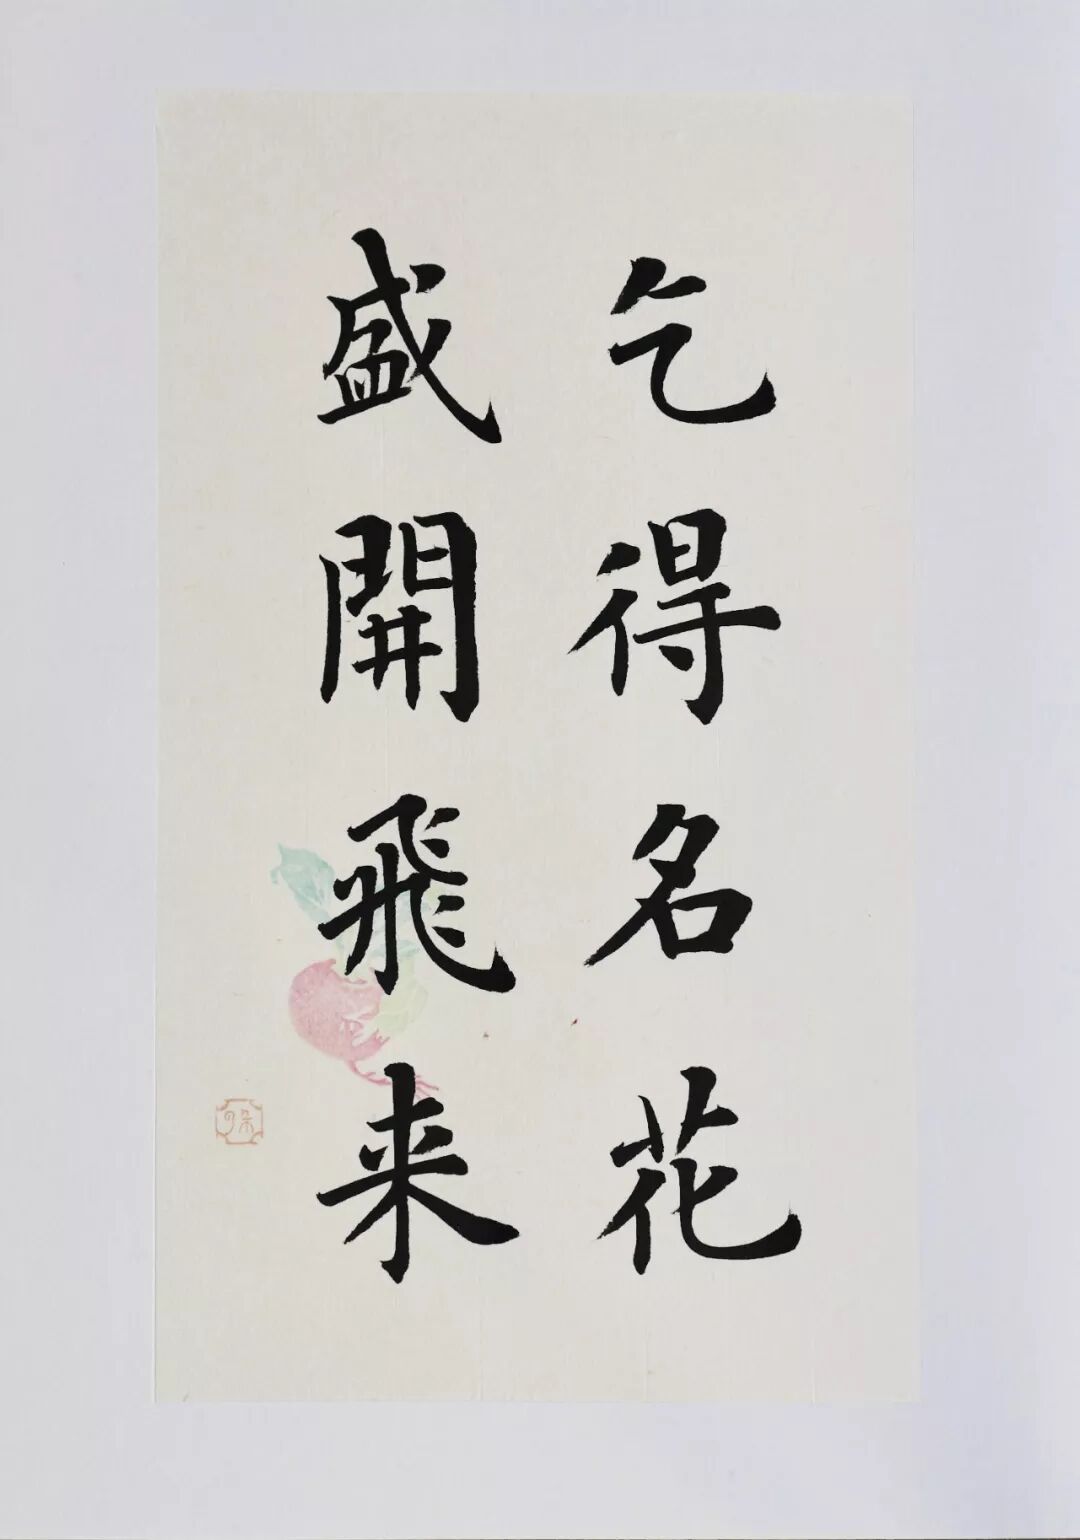 乞得名花
盛開飛来